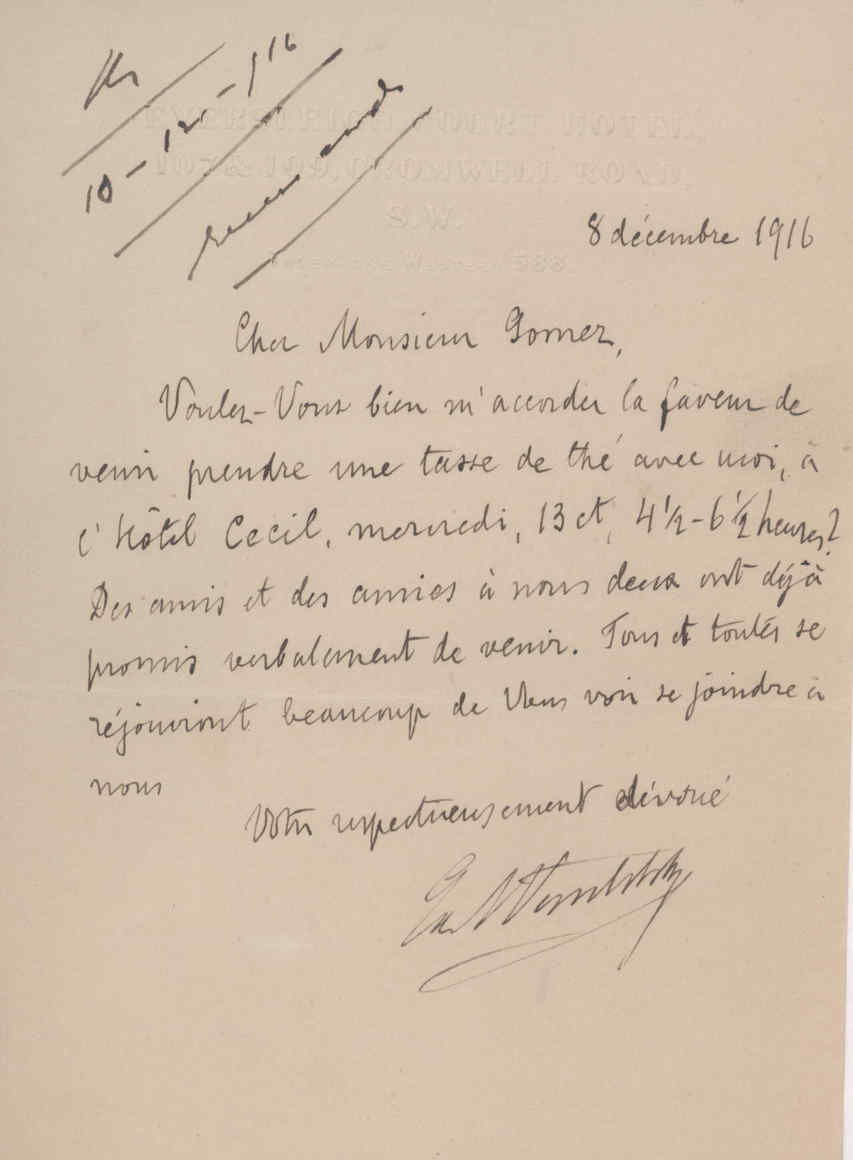 10-12-916
COURT HOTEL,
107 & 109, CROMWELL ROAD,
S.W.
8 décembre 1916
Cher Monsieur Gomez,
Voulez-Vous bien m'accorder la faveur de
venir prendre une tasse de thé avec moi, à
l'Hôtel Cecil, mercredi, 13 ct, 4½-6½ heures?
Des amis et des amies à nous deux ont déjà
promis verbalement de venir. Tous et toutes se
réjouiront beaucoup de Vous voir se joindre à
nous
Votre respectueusement dévoué